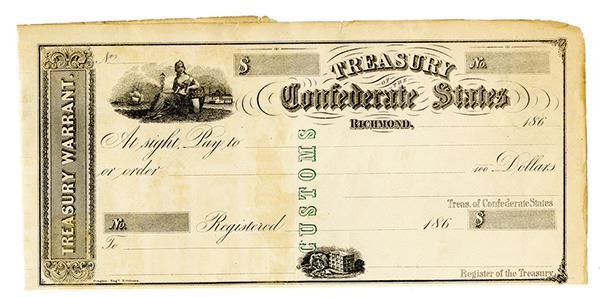 TREASURY WARRANT.
No.
$
TREASURY
OF THE
No.
Confederate States
RICHMOND, 186
At sight, Pay to
or order
100 Dollars
CUSTOMS
Treas. of Confederate States
No. Registered 186 $
To
Register of the Treasury